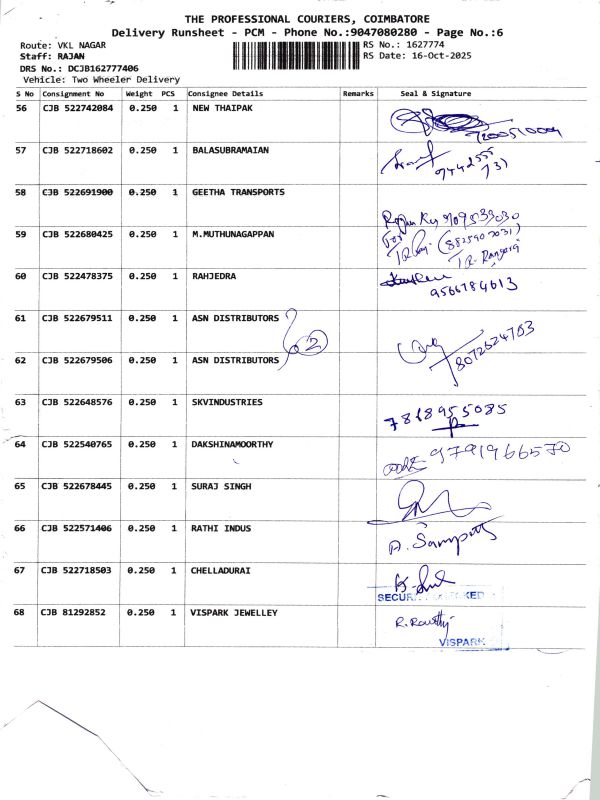 THE PROFESSIONAL COURIERS, COIMBATORE
Delivery Runsheet - PCM - Phone No.:9047080280 - Page No.:6
Route: VKL NAGAR
RS No.: 1627774
Staff: RAJAN
RS Date: 16-Oct-2025
DRS No.: DCJB162777406
Vehicle: Two Wheeler Delivery
S No Consignment No Weight PCS Consignee Details Remarks Seal & Signature
56 CJB 522742084 0.250 1 NEW THAIPAK
7200510009
57 CJB 522718602 0.250 1 BALASUBRAMAIAN
9442555
731
58 CJB 522691900 0.250 1 GEETHA TRANSPORTS
59 CJB 522680425 0.250 1 M.MUTHUNAGAPPAN
For
T.R. Rangaraj
60 CJB 522478375 0.250 1 RAHJEDRA
9566784613
61 CJB 522679511 0.250 1 ASN DISTRIBUTORS
2
62 CJB 522679506 0.250 1 ASN DISTRIBUTORS
8072624763
63 CJB 522648576 0.250 1 SKVINDUSTRIES
7868955085
64 CJB 522540765 0.250 1 DAKSHINAMOORTHY
9791966570
65 CJB 522678445 0.250 1 SURAJ SINGH
66 CJB 522571406 0.250 1 RATHI INDUS
A. Sampath
67 CJB 522718503 0.250 1 CHELLADURAI
68 CJB 81292852 0.250 1 VISPARK JEWELLEY
VISPARK